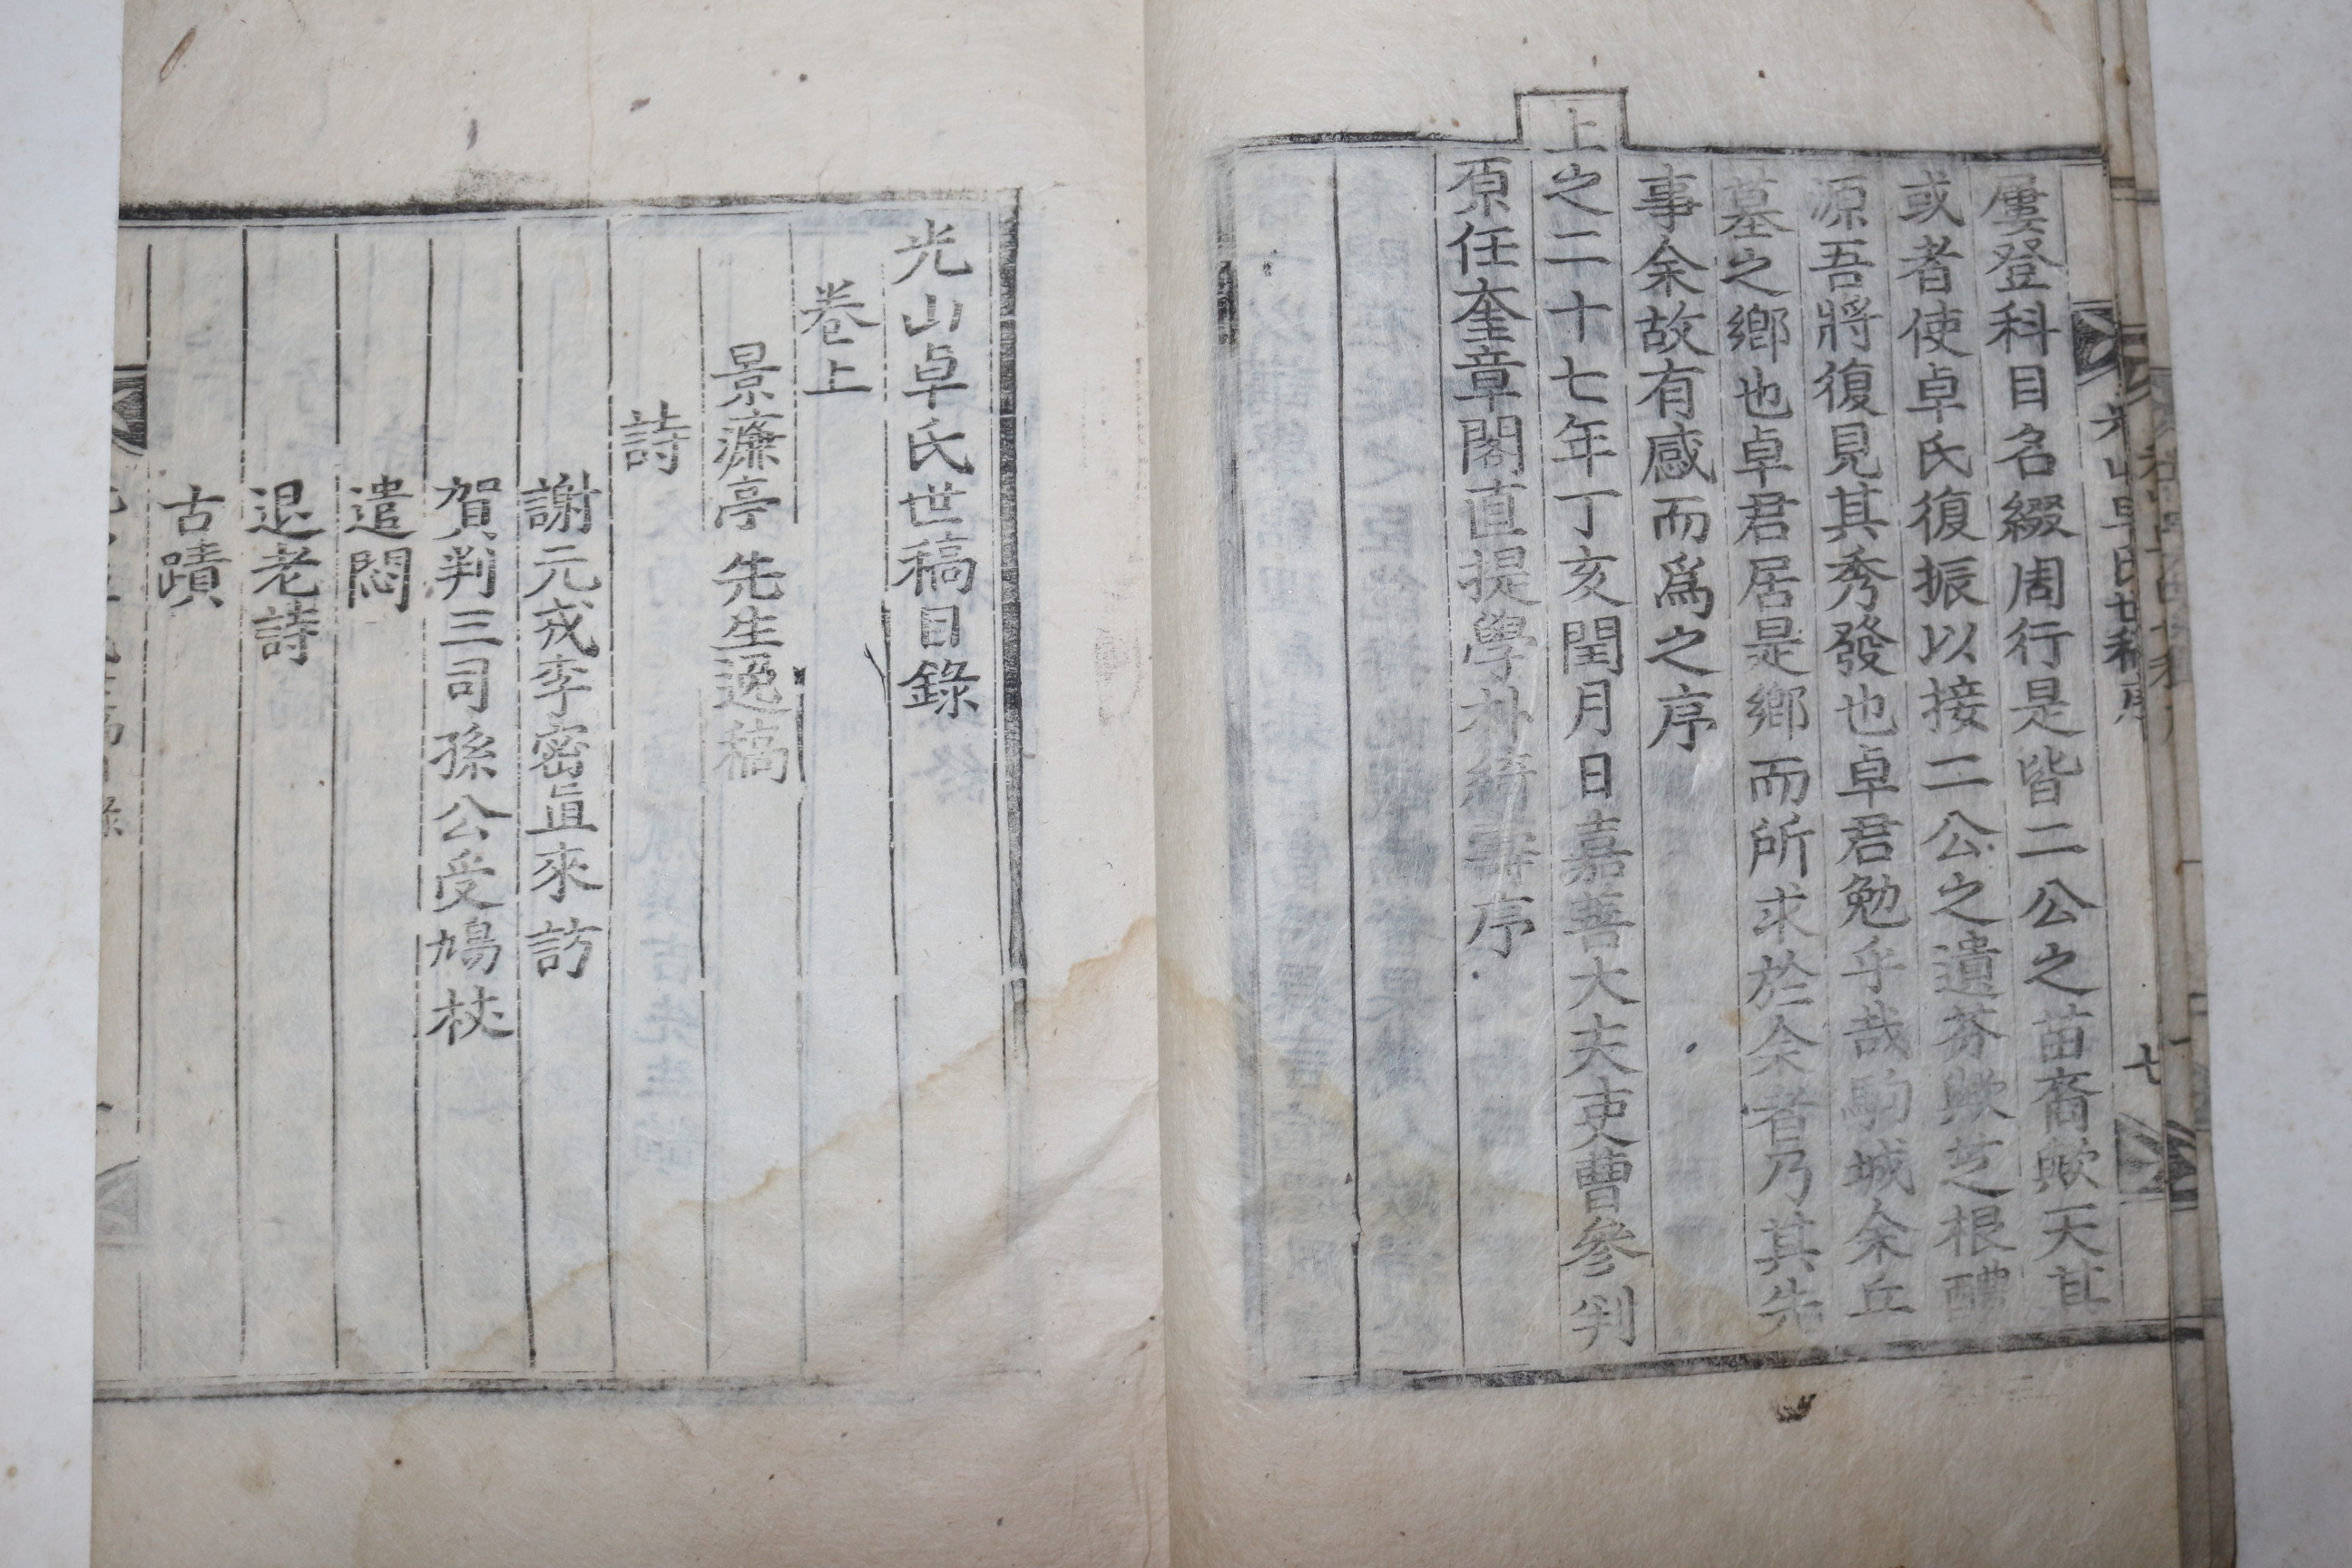 光山卓氏世稿序
七
屢登科目名綴周行是皆二公之苗裔歟天其
或者使卓氏復振以接二公之遺芬歟芝根醴
源吾將復見其秀發也卓君勉乎哉駒城余丘
墓之鄉也卓君居是鄉而所求於余者乃其先
事余故有感而爲之序
上之二十七年丁亥閏月日嘉善大夫吏曹參判
原任奎章閣直提學朴綺壽序
光山卓氏世稿目錄
卷上
景濂亭先生逸稿
詩
謝元戎李密直來訪
賀判三司孫公受鳩杖
遣悶
退老詩
古蹟